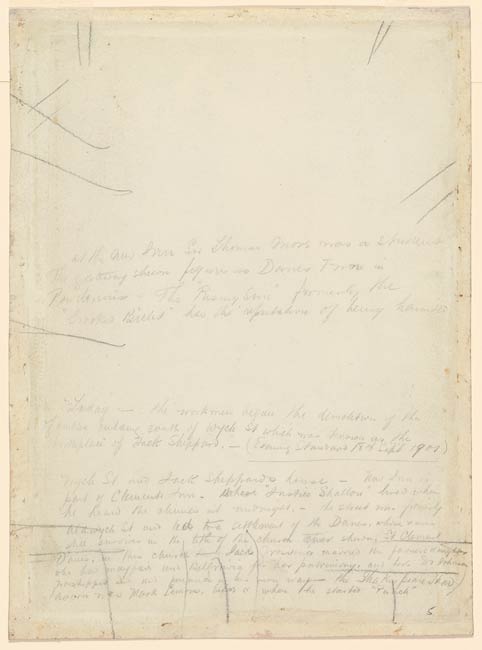 at the New Inn Sir Thomas More was a student
The gateway shewn figures as Danes Inn in
Pendennis - The "Rising Sun" formerly the
"Crooked Billet" has the reputation of being haunted
"Today — the workmen began the demolition of the
famous building south of Wych St which was known as the
birthplace of Jack Sheppard. — (Evening Standard 18th Sept 1901)
Wych St and Jack Sheppard's house — New Inn is
part of Clements Inn. Where "Justice Shallow" lived when
he heard the chimes at midnight. - the street was formerly
Aldwych St and led to a settlement of the Danes, whose name
also survives in the title of the church shewn, St Clement
Danes, in this church Jack married the
she for her and here Dr Johnson
worshipped in his own way - the Shakespeare Head
known as Mark Lemons, here is where he started "Punch"
5